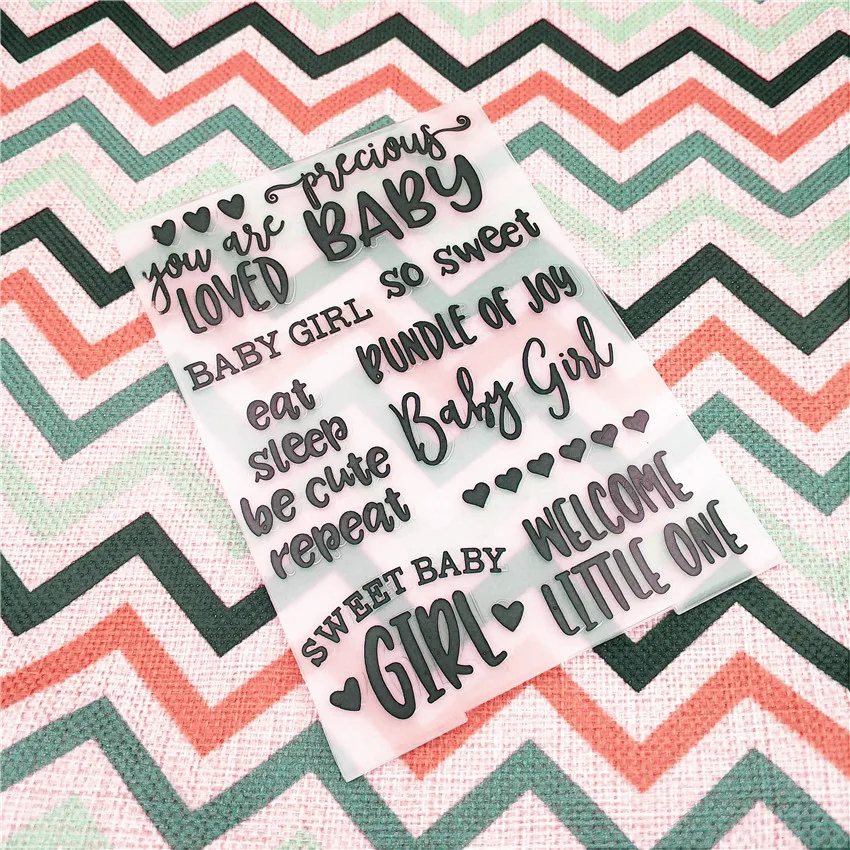 you are
LOVED
precious
BABY
so sweet
BABY GIRL
BUNDLE OF JOY
Baby Girl
eat
sleep
be cute
repeat
WELCOME
LITTLE ONE
SWEET BABY
GIRL